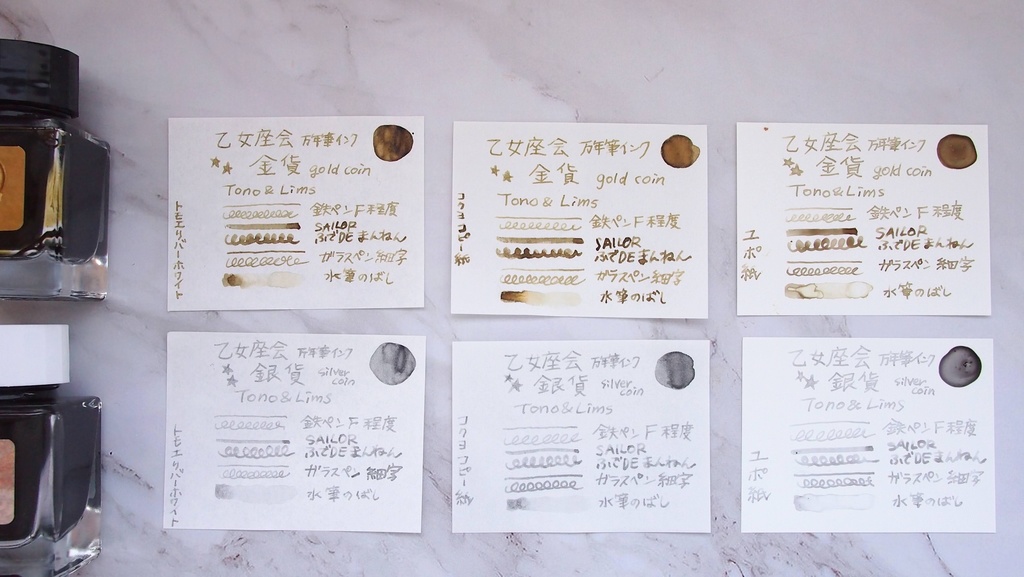 乙女座会 万年筆インク
金貨 gold coin
Tono & Lims
鉄ペンF程度
SAILOR
ふでDEまんねん
ガラスペン細字
水筆のばし
トモエリバーホワイト
乙女座会 万年筆インク
金貨 gold coin
Tono & Lims
鉄ペンF程度
SAILOR
ふでDEまんねん
ガラスペン細字
水筆のばし
コクヨコピー紙
乙女座会 万年筆インク
金貨 gold coin
Tono & Lims
鉄ペンF程度
SAILOR
ふでDEまんねん
ガラスペン細字
水筆のばし
ユポ紙
乙女座会 万年筆インク
銀貨 silver
coin
Tono & Lims
鉄ペンF程度
SAILOR
ふでDEまんねん
ガラスペン細字
水筆のばし
トモエリバーホワイト
乙女座会 万年筆インク
銀貨 silver
coin
Tono & Lims
鉄ペンF程度
SAILOR
ふでDEまんねん
ガラスペン細字
水筆のばし
コクヨコピー紙
乙女座会 万年筆インク
銀貨 silver
coin
Tono & Lims
鉄ペンF程度
SAILOR
ふでDEまんねん
ガラスペン細字
水筆のばし
ユポ紙